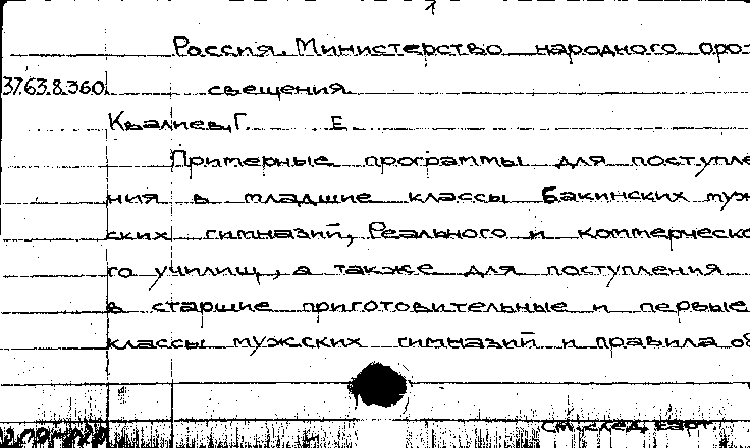 1
Россия. Министерство народного про-
3763.8.360 свещения.
Квалиев, Г. Е.
Примерные программы для поступле
ния в младшие классы Бакинских муж
ских гимназий, Реального и коммерческо
го училищ, а также для поступления
в старшие приготовительные и первые
классы мужских гимназий и правила об
См. след. карт.